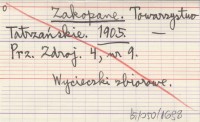 Zakopane. Towarzystwo
Tatrzańskie. 1905. —
Prz. Zdroj. 4, nr 9.
Wycieczki zbiorowe.